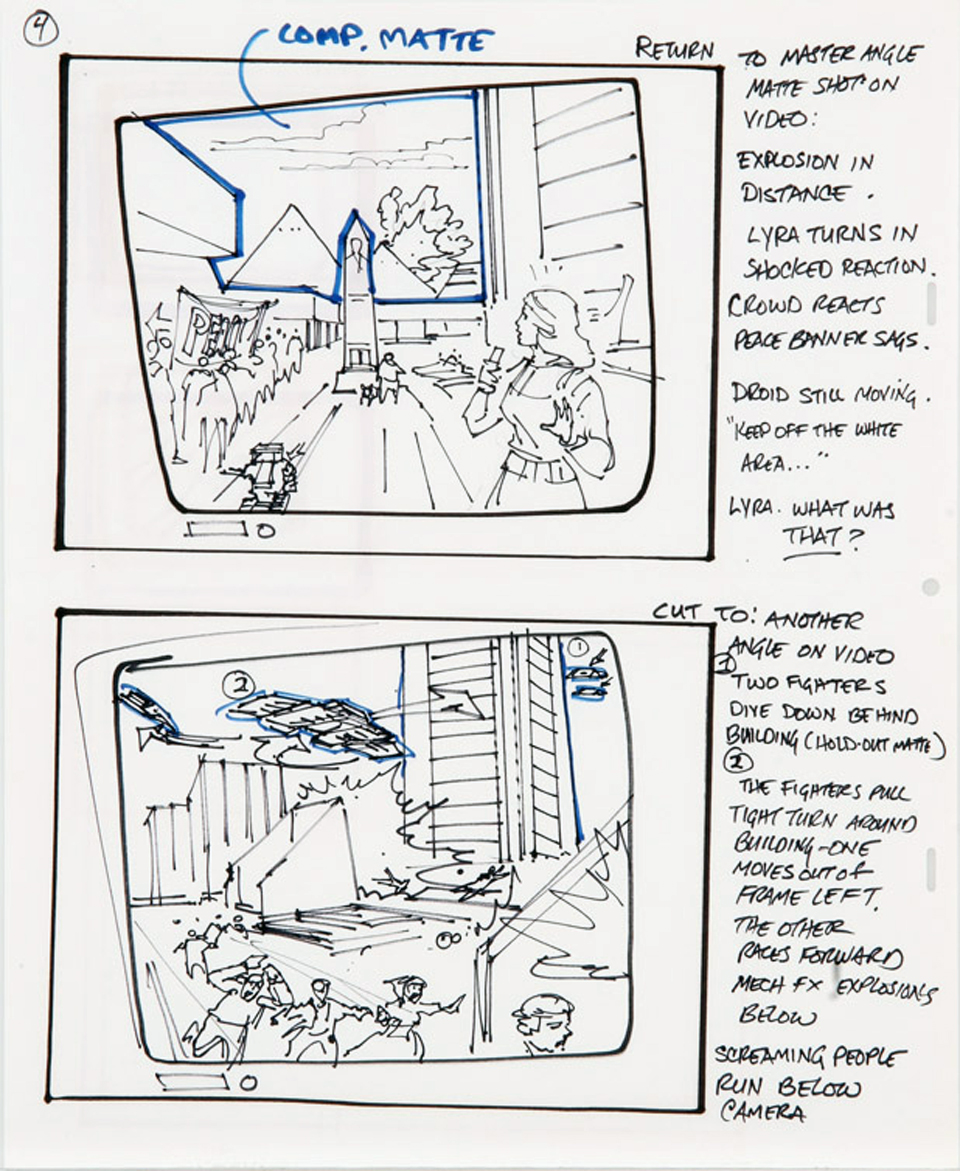 4
COMP. MATTE
RETURN TO MASTER ANGLE
MATTE SHOT ON
VIDEO:
EXPLOSION IN
DISTANCE.
LYRA TURNS IN
SHOCKED REACTION.
CROWD REACTS
PEACE BANNER SAGS.
DROID STILL MOVING.
"KEEP OFF THE WHITE
AREA..."
LYRA. WHAT WAS
THAT?
CUT TO: ANOTHER
ANGLE ON VIDEO
1
TWO FIGHTERS
DIVE DOWN BEHIND
BUILDING (HOLD-OUT MATTE)
2
THE FIGHTERS PULL
TIGHT TURN AROUND
BUILDING-ONE
MOVES OUT OF
FRAME LEFT.
THE OTHER
RACES FORWARD
MECH FX EXPLOSIONS
BELOW
SCREAMING PEOPLE
RUN BELOW
CAMERA
2
1